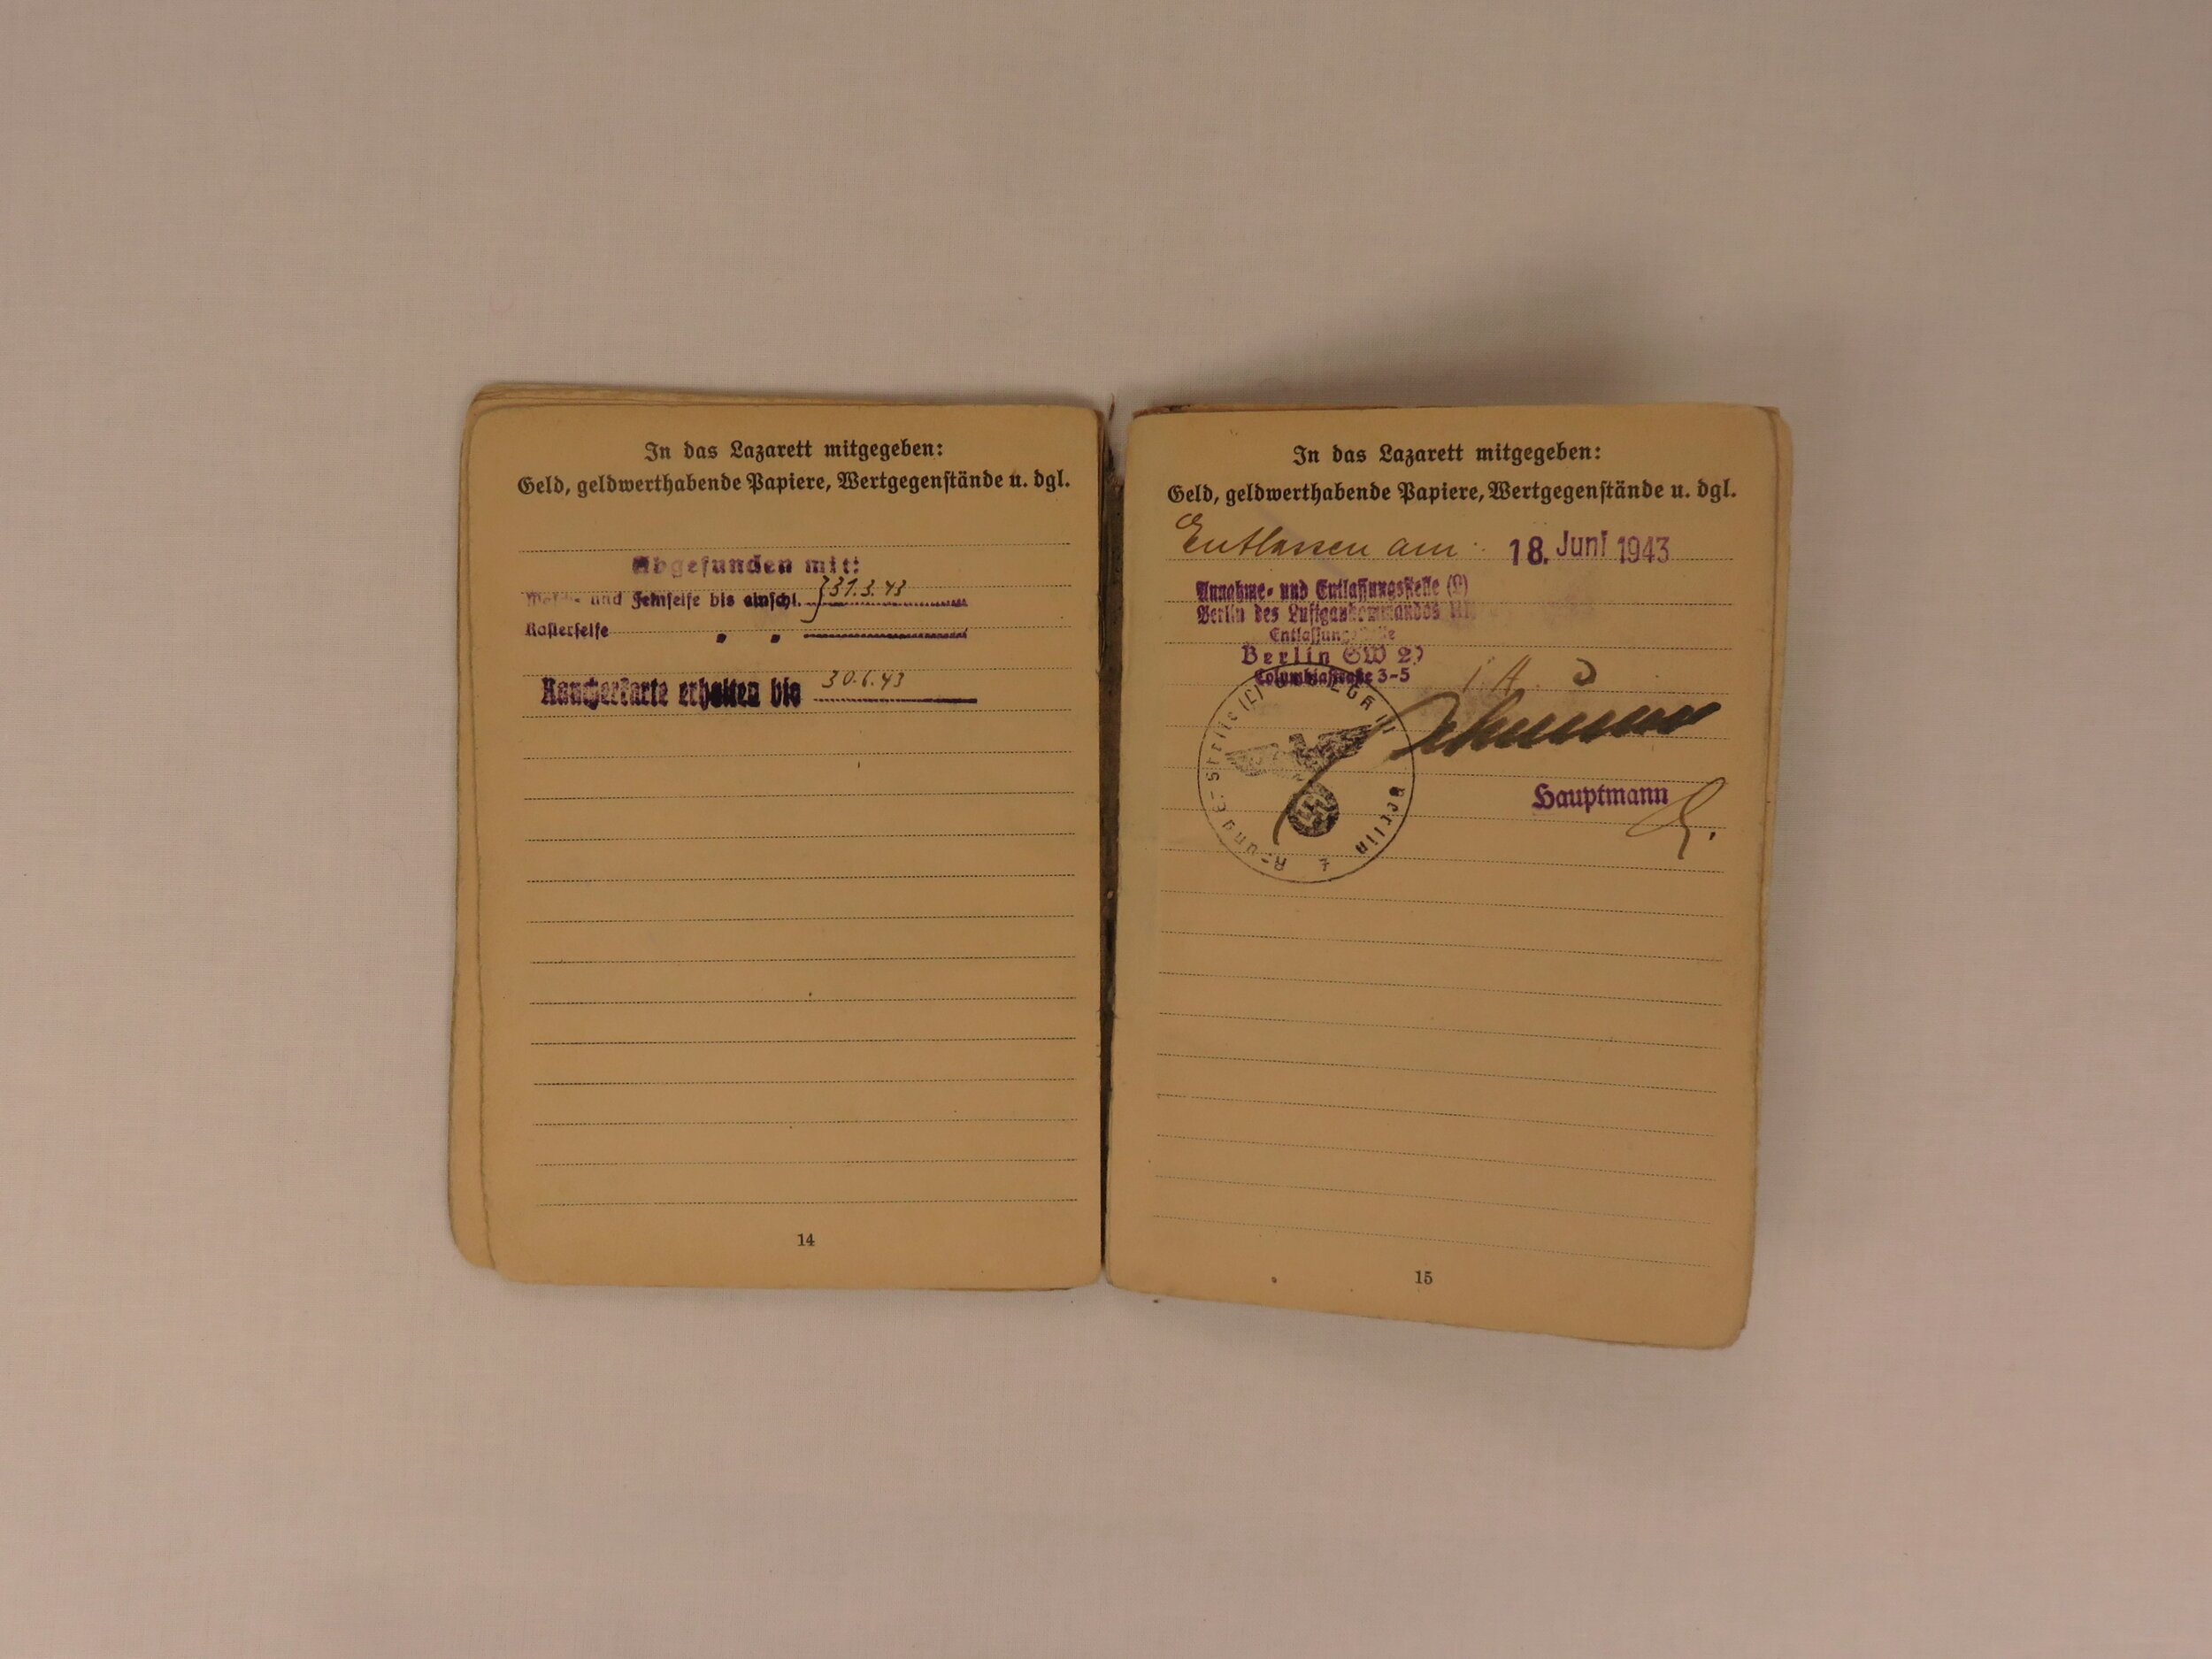 In das Lazarett mitgegeben:
Geld, geldwerthabende Papiere, Wertgegenstände u. dgl.
Abgefunden mit:
und Feinseife bis einschl. } 31.3.43
Rasierseife " "
Raucherkarte erhalten bis 30.6.43
14
In das Lazarett mitgegeben:
Geld, geldwerthabende Papiere, Wertgegenstände u. dgl.
Entlassen am: 18. Juni 1943
Annahme- und Entlassungsstelle (L)
Berlin des Luftgaukommandos III
Entlassungsstelle
Berlin SW 29
Columbiastraße 3-5
Berlin
Hauptmann
15